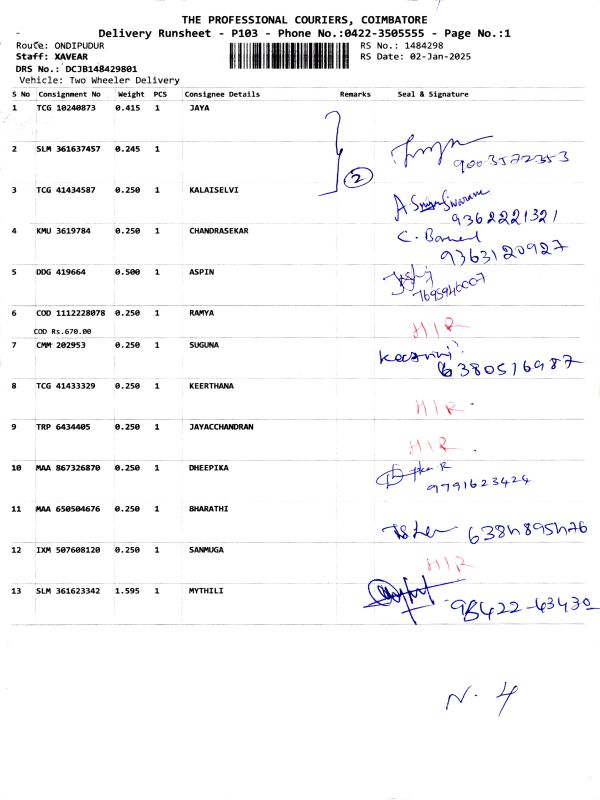 THE PROFESSIONAL COURIERS, COIMBATORE
Delivery Runsheet - P103 - Phone No.:0422-3505555 - Page No.:1
Route: ONDIPUDUR RS No.: 1484298
Staff: XAVEAR RS Date: 02-Jan-2025
DRS No.: DCJB148429801
Vehicle: Two Wheeler Delivery
S No Consignment No Weight PCS Consignee Details Remarks Seal & Signature
1 TCG 10240873 0.415 1 JAYA
2 SLM 361637457 0.245 1 9003572353
2
3 TCG 41434587 0.250 1 KALAISELVI
9362221321
4 KMU 3619784 0.250 1 CHANDRASEKAR
9363120927
5 DDG 419664 0.500 1 ASPIN
7695946007
6 COD 1112228078 0.250 1 RAMYA
COD Rs.670.00 HIR
7 CMM 202953 0.250 1 SUGUNA
6380516987
8 TCG 41433329 0.250 1 KEERTHANA
HIR
9 TRP 6434405 0.250 1 JAYACCHANDRAN
HIR
10 MAA 867326870 0.250 1 DHEEPIKA
9791623424
11 MAA 650504676 0.250 1 BHARATHI
12 IXM 507608120 0.250 1 SANMUGA
HIR
13 SLM 361623342 1.595 1 MYTHILI
98422-63430
N. 4